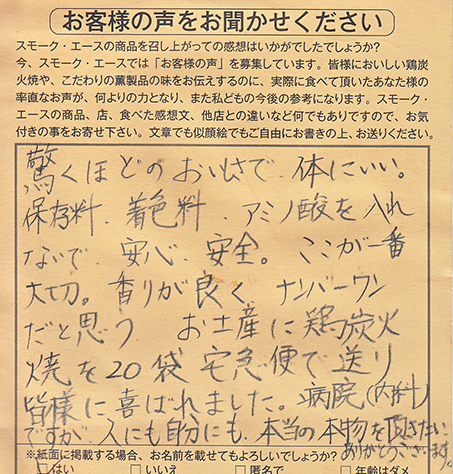 お客様の声をお聞かせください
スモーク・エースの商品を召し上がっての感想はいかがでしたでしょうか?
今、スモーク・エースでは「お客様の声」を募集しています。皆様においしい鶏炭
火焼や、こだわりの薫製品の味をお伝えするのに、実際に食べて頂いたあなた様の
率直なお声が、何よりの力となり、また私どもの今後の参考になります。スモーク・
エースの商品、店、食べた感想文、他店との違いなど何でもありですので、お気
付きの事をお寄せ下さい。文章でも似顔絵でもご自由にお書きの上、お送りください。
驚くほどのおいしさで 体にいい。
保存料、着色料、アミノ酸を入れ
ないで 安心 安全。 ここが一番
大切。香りが良く ナンバーワン
だと思う お土産に鶏炭火
焼を20袋 宅急便で送り
皆様に喜ばれました。病院(内科)
ですが 人にも自分にも 本当の本物を頂きたい
ありがとうございます。
※紙面に掲載する場合、お名前を載せてもよろしいでしょうか?
□はい □いいえ □匿名で □年齢はダメ